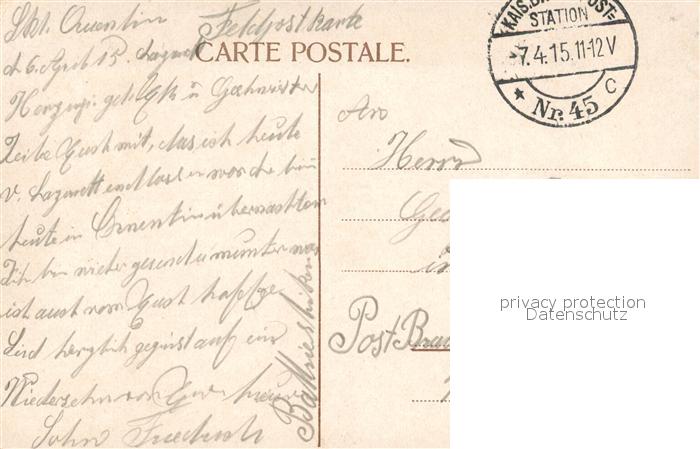 Skt. Quentin Feldpostkarte
d. 6. April 15. Lazarett
CARTE POSTALE.
KAIS. D. POST=
STATION
7.4.15.11-12V
* Nr. 45 C
Herzinnig gel. Elt. u. Geschwister
Teile Euch mit, das ich heute
v. Lazarett entlassen worde bin
heute in Quentin übernachten
Ich bin wieder gesund u munter was
ich auch von Euch hoffe
Seid herzlich gegrüst auf ein
Wiedersehn von Euer
Sohn Friedrich
An
Herrn
Geo
in
Post Brau
privacy protection
Datenschutz